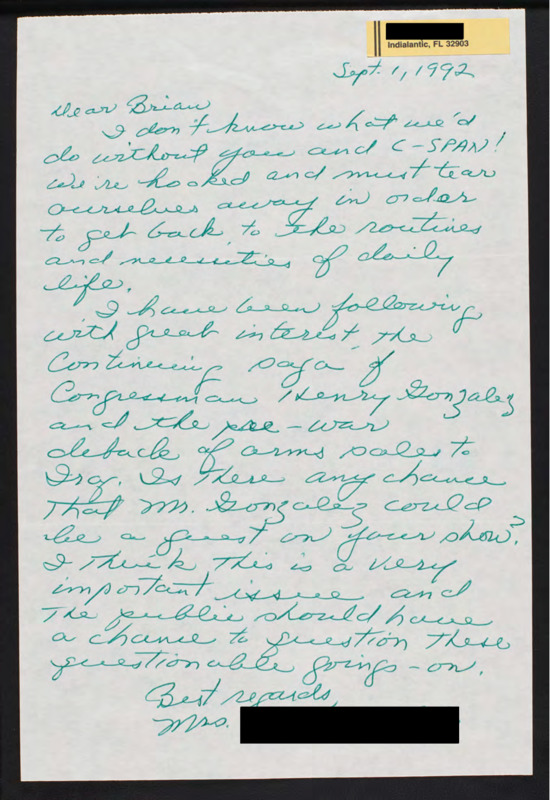 Indialantic, FL 32903
Sept. 1, 1992
Dear Brian
I don't know what we'd
do without you and C-SPAN!
We're hooked and must tear
ourselves away in order
to get back to the routines
and necessities of daily
life.
I have been following
with great interest, the
Continuing saga of
Congressman Henry Gonzalez
and the pre-war
deback of arms sales to
Iraq. Is there any chance
that Mr. Gonzalez could
be a guest on your show?
I think this is a very
important issue and
the public should have
a chance to question these
questionable goings-on.
Best regards,
Mrs.